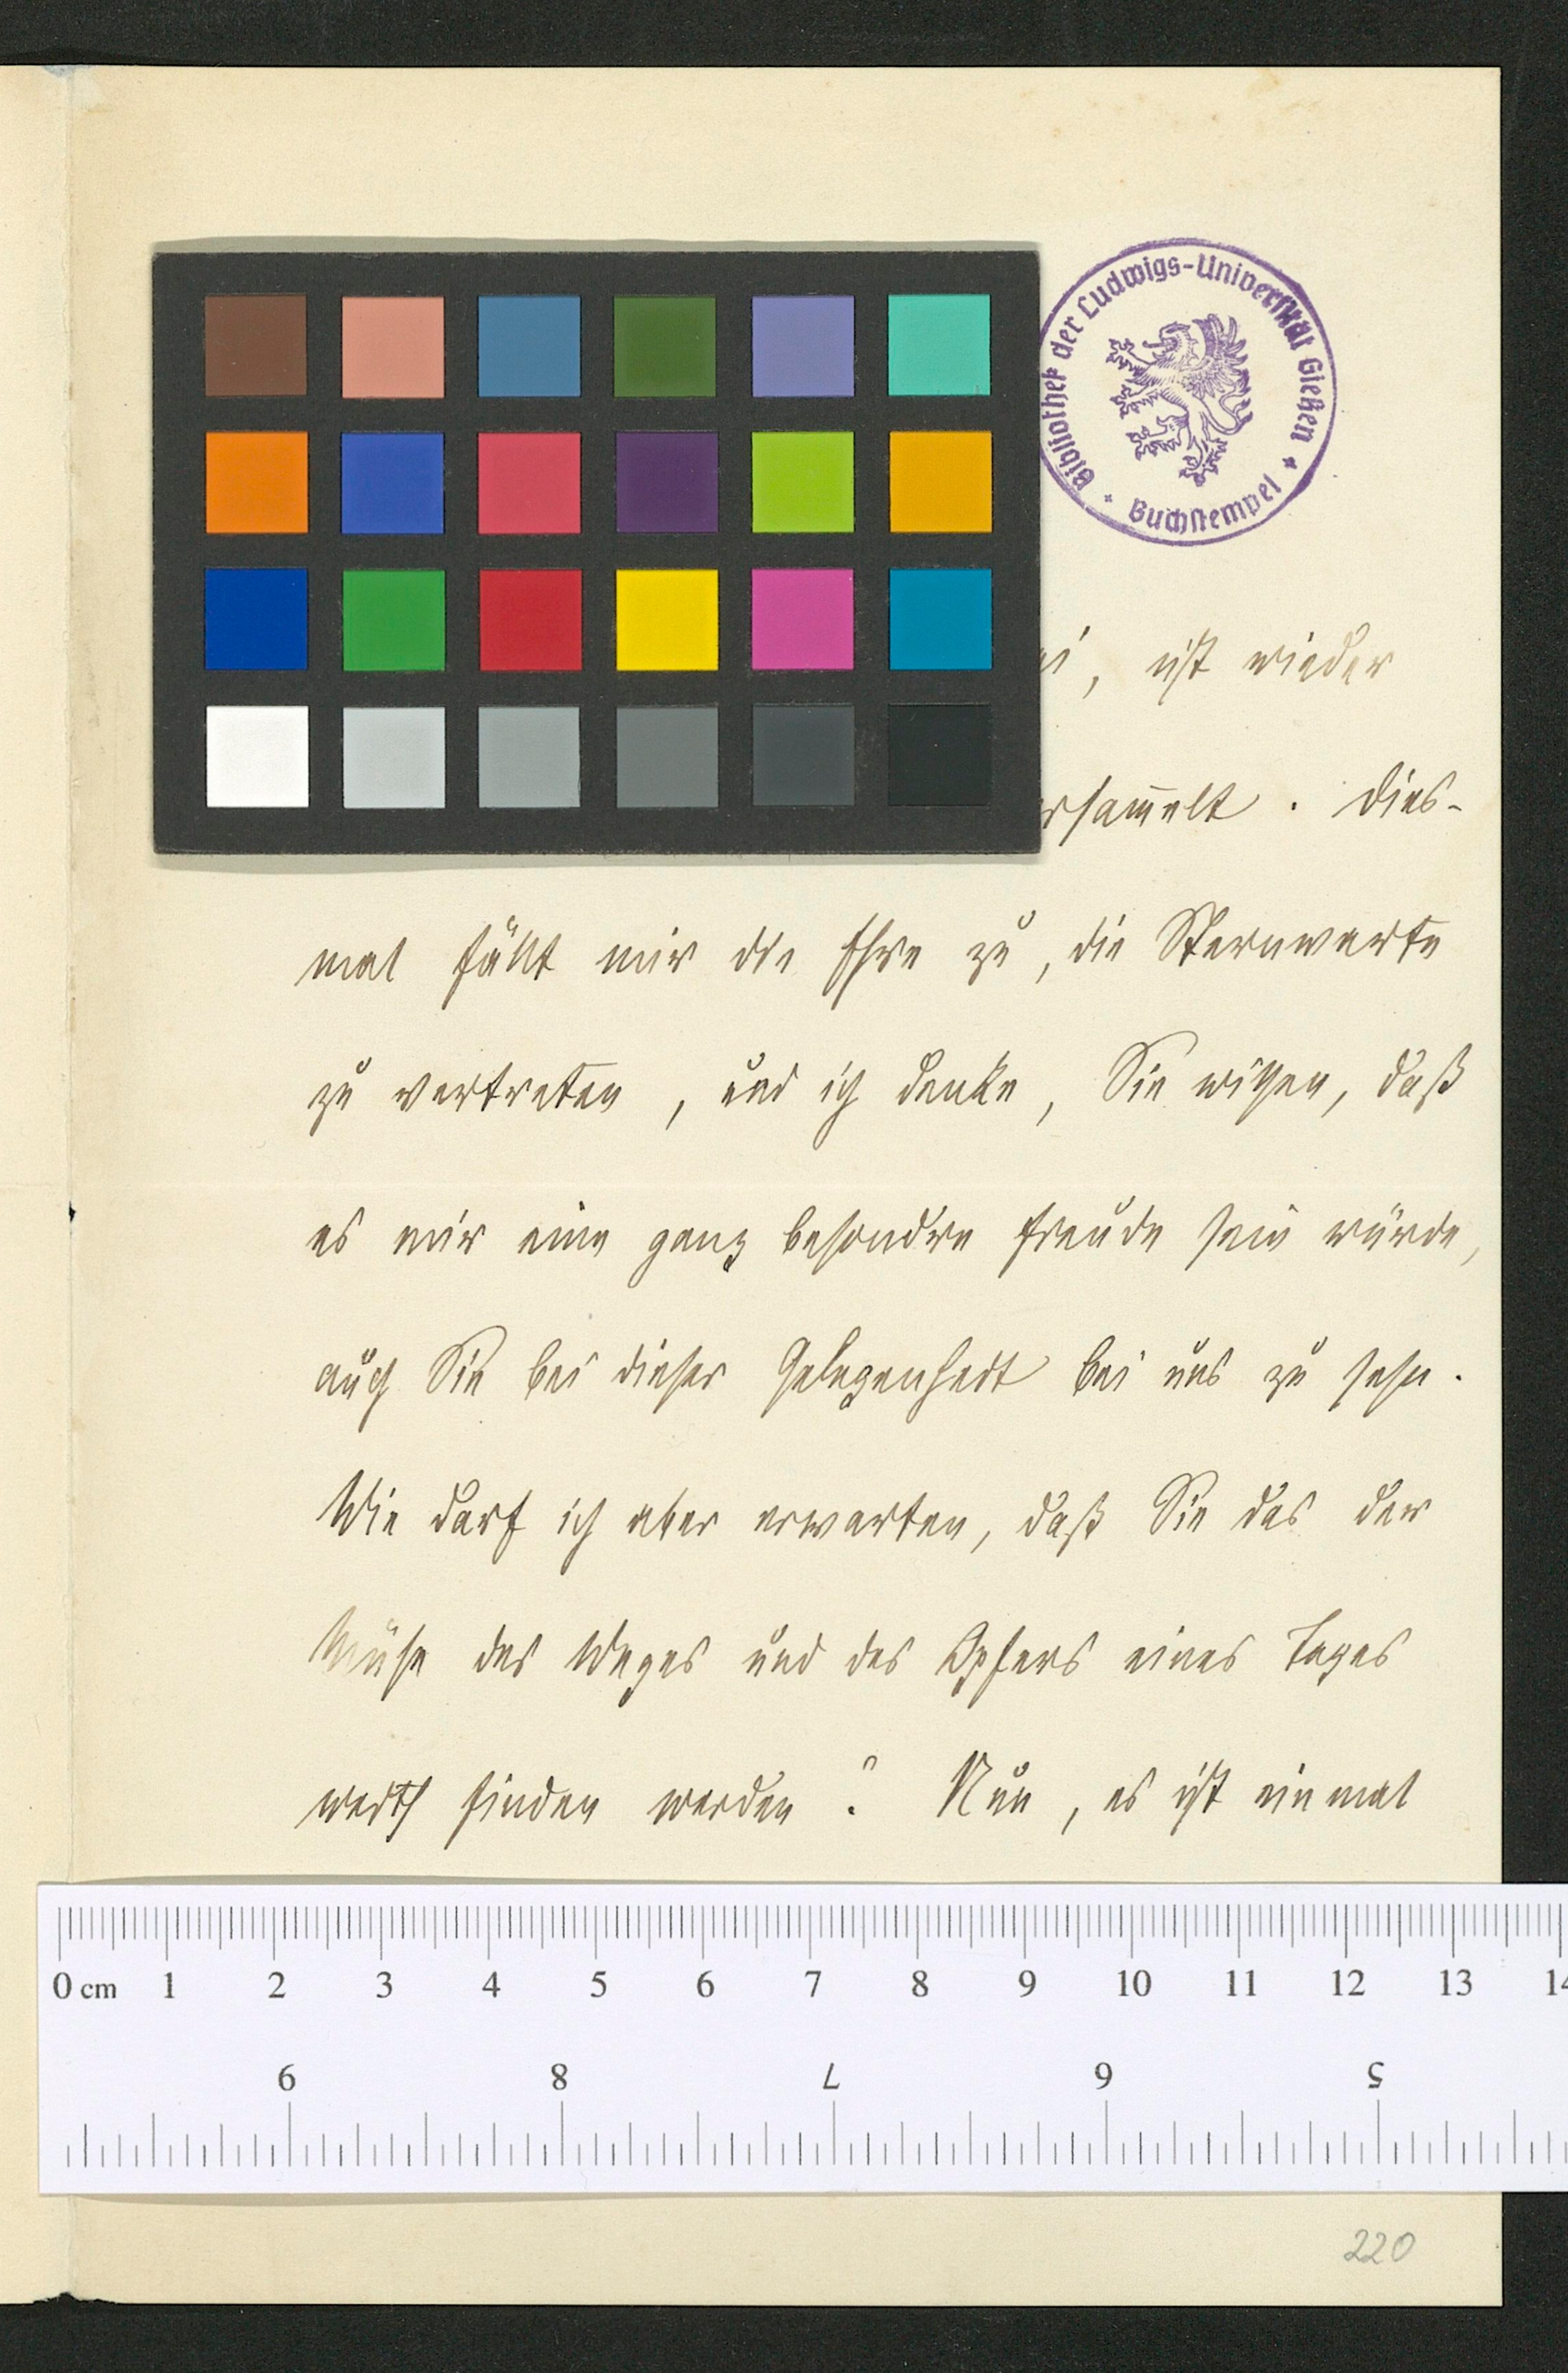 Bibliothek der Ludwigs-Universität Gießen
* Buchstempel *
ei, ist wieder
rsam̅elt. Dies-
mal fällt mir die Ehre zu, die Sternwarte
zu vertreten, und ich denke, Sie wissen, daß
es mir eine ganz besondre Freude sein würde,
auch Sie bei dieser Gelegenheit bei uns zu sehn.
Wie darf ich aber erwarten, daß Sie das der
Mühe des Weges und des Opfers eines Tages
werth finden werden? Nun, es ist einmal
0 cm 1 2 3 4 5 6 7 8 9 10 11 12 13 14
9 8 7 6 5
220